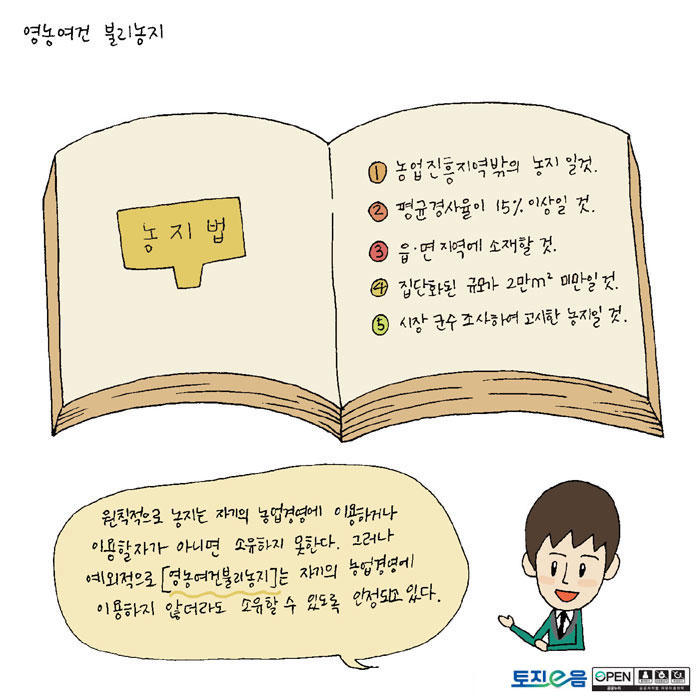 영농여건 불리농지
농지법
1 농업진흥지역밖의 농지일것.
2 평균경사율이 15% 이상일 것.
3 읍·면 지역에 소재할 것.
4 집단화된 규모가 2만m² 미만일 것.
5 시장 군수 조사하여 고시한 농지일 것.
원칙적으로 농지는 자기의 농업경영에 이용하거나
이용할자가 아니면 소유하지 못한다. 그러나
예외적으로 [영농여건불리농지]는 자기의 농업경영에
이용하지 않더라도 소유할 수 있도록 안정되고 있다.
토지e음
OPEN
공공누리